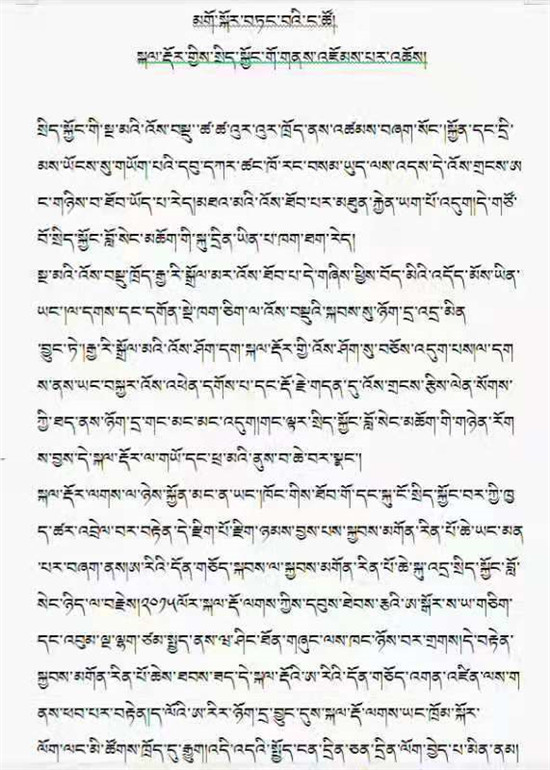 མགོ་སྐོར་བཏང་བའི་ང་ཚོ།
སྐལ་རྡོར་གྱིས་སྲིད་སྐྱོང་གོ་གནས་འཛོམས་པར་འཆོས།
སྲིད་སྐྱོང་གི་སྔ་མའི་འོས་བསྡུ་་ཚ་ཚ་འུར་འུར་ཁྲོད་ནས་འཚམས་བཞག་སོང་།སྐྱོན་དང་དྲི་
མས་ཡོངས་སུ་གཡོག་པའི་དབུ་དཀར་ཚང་ཁོ་རང་བསམ་ཡུད་ལས་འདས་དེ་འོས་གྲངས་ཨ
ང་གཉིས་བ་ཐོབ་ཡོད་པ་རེད།མཐའ་མའི་འོས་ཐོབ་པར་མཐུན་རྐྱེན་ཡག་པོ་འདུག།དེ་གཙོ་
བོ་སྲིད་སྐྱོང་བློ་སེང་མཆོག་གི་སྐུ་དྲིན་ཡིན་པ་ཁག་ཐག་རེད།
སྔ་མའི་འོས་བསྡུ་ཁྲོད་རྒྱ་རི་སྒྲོལ་མར་འོས་ཐོབ་པ་དེ་གཞིས་ཕྱིས་བོད་མིའི་འདོད་མོས་ཡིན་
ཡང་།ལ་དགས་དང་དགོན་སྡེ་ཁག་ཅིག་ལ་འོས་བསྡུའི་སྐབས་སུ་ཉོག་དྲ་འདྲ་མིན
་བྱུང་ཏེ་།རྒྱ་རི་སྒྲོལ་མའི་འོས་ཤོག་དག་སྐལ་རྡོར་གྱི་འོས་ཤོག་སུ་བཅོས་འདུག་པས།ལ་དག
ས་ནས་ཡང་བསྐྱར་འོས་འཕེན་དགོས་པ་དང་རྡོ་རྗེ་གདན་དུ་འོས་གྲངས་རྩིས་ལེན་སོགས་
ཀྱི་ཐད་ནས་ཉོག་དྲ་གང་མང་མང་འདུག།གང་ལྟར་སྲིད་སྐྱོང་བློ་སེང་མཆོག་གི་གཉེན་རོག
ས་བྱས་དེ་སྐལ་རྡོར་ལ་གཡོ་དང་ཕྲ་མའི་ནུས་བ་ཆེ་བར་སྣང་།
སྐལ་རྡོར་ལགས་ལ་ཉེས་སྐྱོན་མང་ན་ཡང་།ཁོང་གིས་ཐོབ་གོ་དང་སྐུ་ངོ་སྲིད་སྐྱོང་བར་ཀྱི་ཁྱ
ད་ཚར་འབྲེལ་བར་བརྟེན་དེ་རྫིག་པོ་རྫིག་ཉམས་བྱས་པས་སྐྱབས་མགོན་རིན་པོ་ཆེ་ཡང་མན
་པར་བཞག་ནས།ཨ་རིའི་དོན་གཅོད་སྐབས་ལ་སྐྱབས་མགོན་རིན་པོ་ཆེ་སྐུ་འདྲ་སྲིད་སྐྱོང་བློ་
སེང་ཉིད་ལ་བརྗེས།༢༠༡༥ལོར་སྐལ་རྡོ་ལགས་ཀྱིས་དབུས་ཐེབས་རྩའི་ཨ་སྒོར་ས་ཡ་གཅིག་
དང་འབུམ་ལྔ་ལྷག་ཙམ་སྤྱད་ནས་ཝ་ཤིང་ཐོན་གཞུང་ལས་ཁང་ཉོས་བར་གྲགས།དེ་བརྟེན་
སྐྱབས་མགོན་རིན་པོ་ཆེས་ཐབས་ཟད་དེ་སྐལ་རྡོའི་ཨ་རིའི་དོན་གཅོད་འགན་འཛིན་ལས་ག
ནས་ཕབ་པར་བརྟེན།ད་ལོའི་ཨ་རིར་ཉོག་དྲ་བྱུང་དུས་སྐལ་རྡོ་ལགས་ཡང་ཁྲོམ་སྐོར་
ལོག་ལང་མི་ཚོགས་ཁྲོད་དུ་རྒྱུག།འདི་འདའི་སྤྱོད་ངན་དྲིན་ཅན་དྲིན་ལོག་བྱེད་པ་མིན་ནམ།